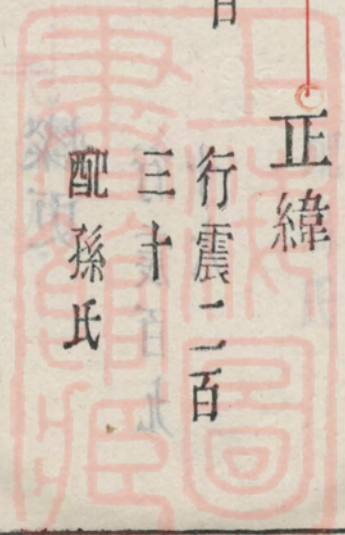 正緯
行震二百
三十
配孫氏